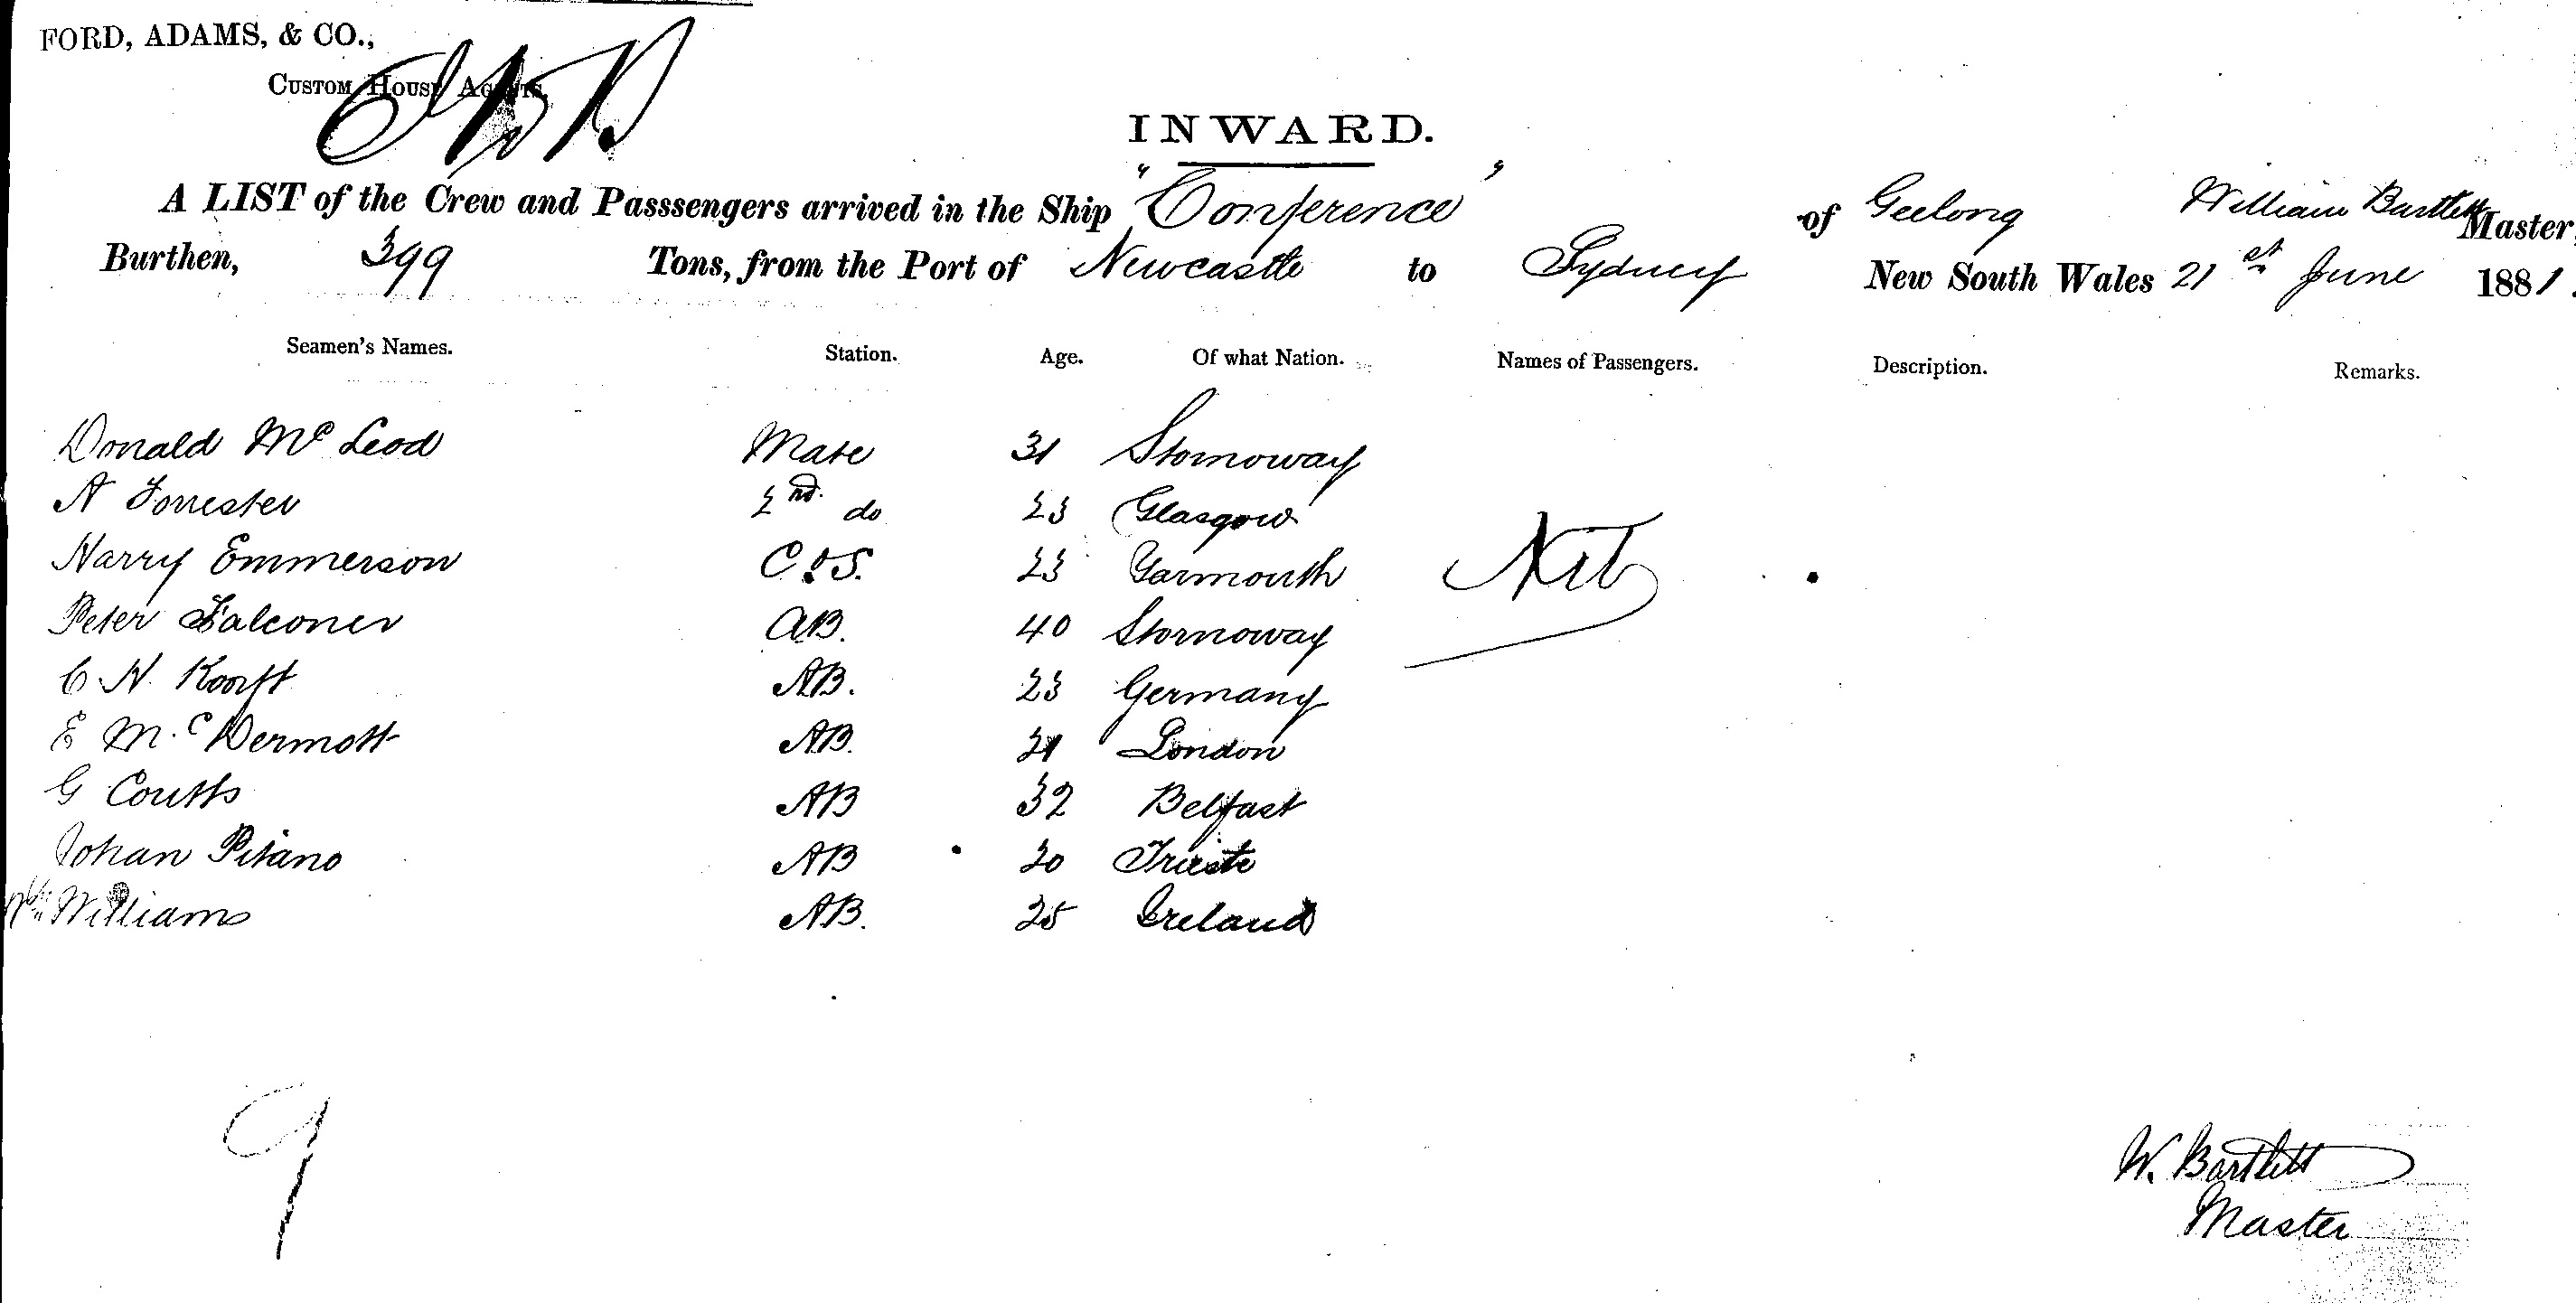 FORD, ADAMS, & CO.,
CUSTOM HOUSE AGENTS.
INWARD.
A LIST of the Crew and Passsengers arrived in the Ship "Conference" of Geelong William Bartlett Master,
Burthen, 399 Tons, from the Port of Newcastle to Sydney New South Wales 21st June 1881.
Seamen's Names. Station. Age. Of what Nation. Names of Passengers. Description. Remarks.
Donald McLeod Mate 31 Stornoway
A Forrester 2nd do 23 Glasgow
Harry Emmerson C & S. 23 Yarmouth Nil
Peter Falconer AB. 40 Stornoway
C H. AB. 23 Germany
E McDermott AB. 21 London
G Coutts AB 32 Belfast
Johan Pitano AB 20 Trieste
Wm Williams AB. 25 Ireland
9
W. Bartlett
Master